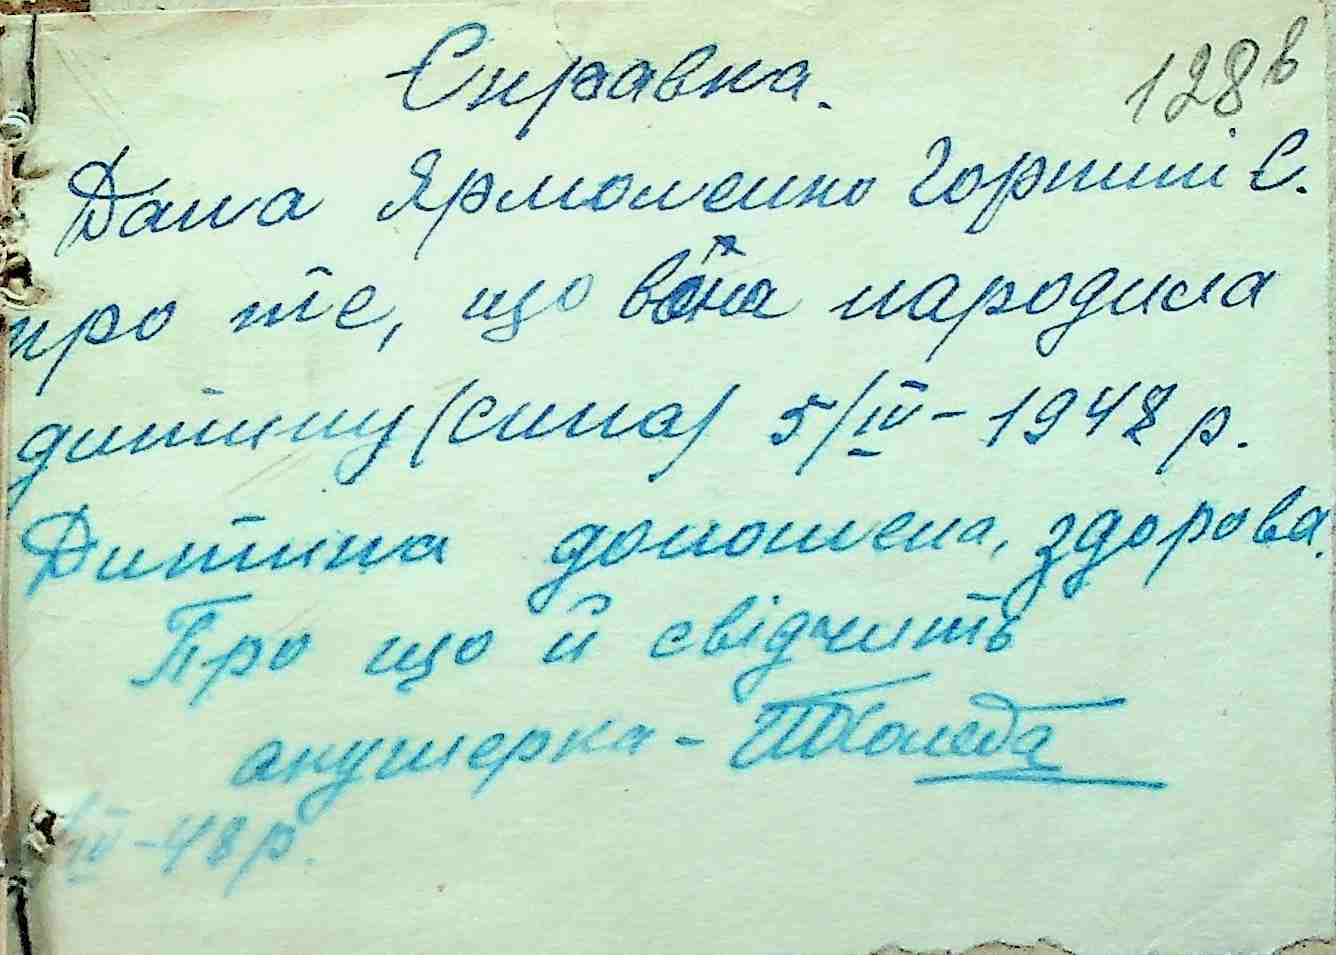 Справка. 128в
Дана Ярмоленко Горпині Є.
про те, що вона народила
дитину (сина) 5/IV – 1948 р.
Дитина доношена, здорова.
Про що й свідчить
акушерка –
/IV – 48 р.